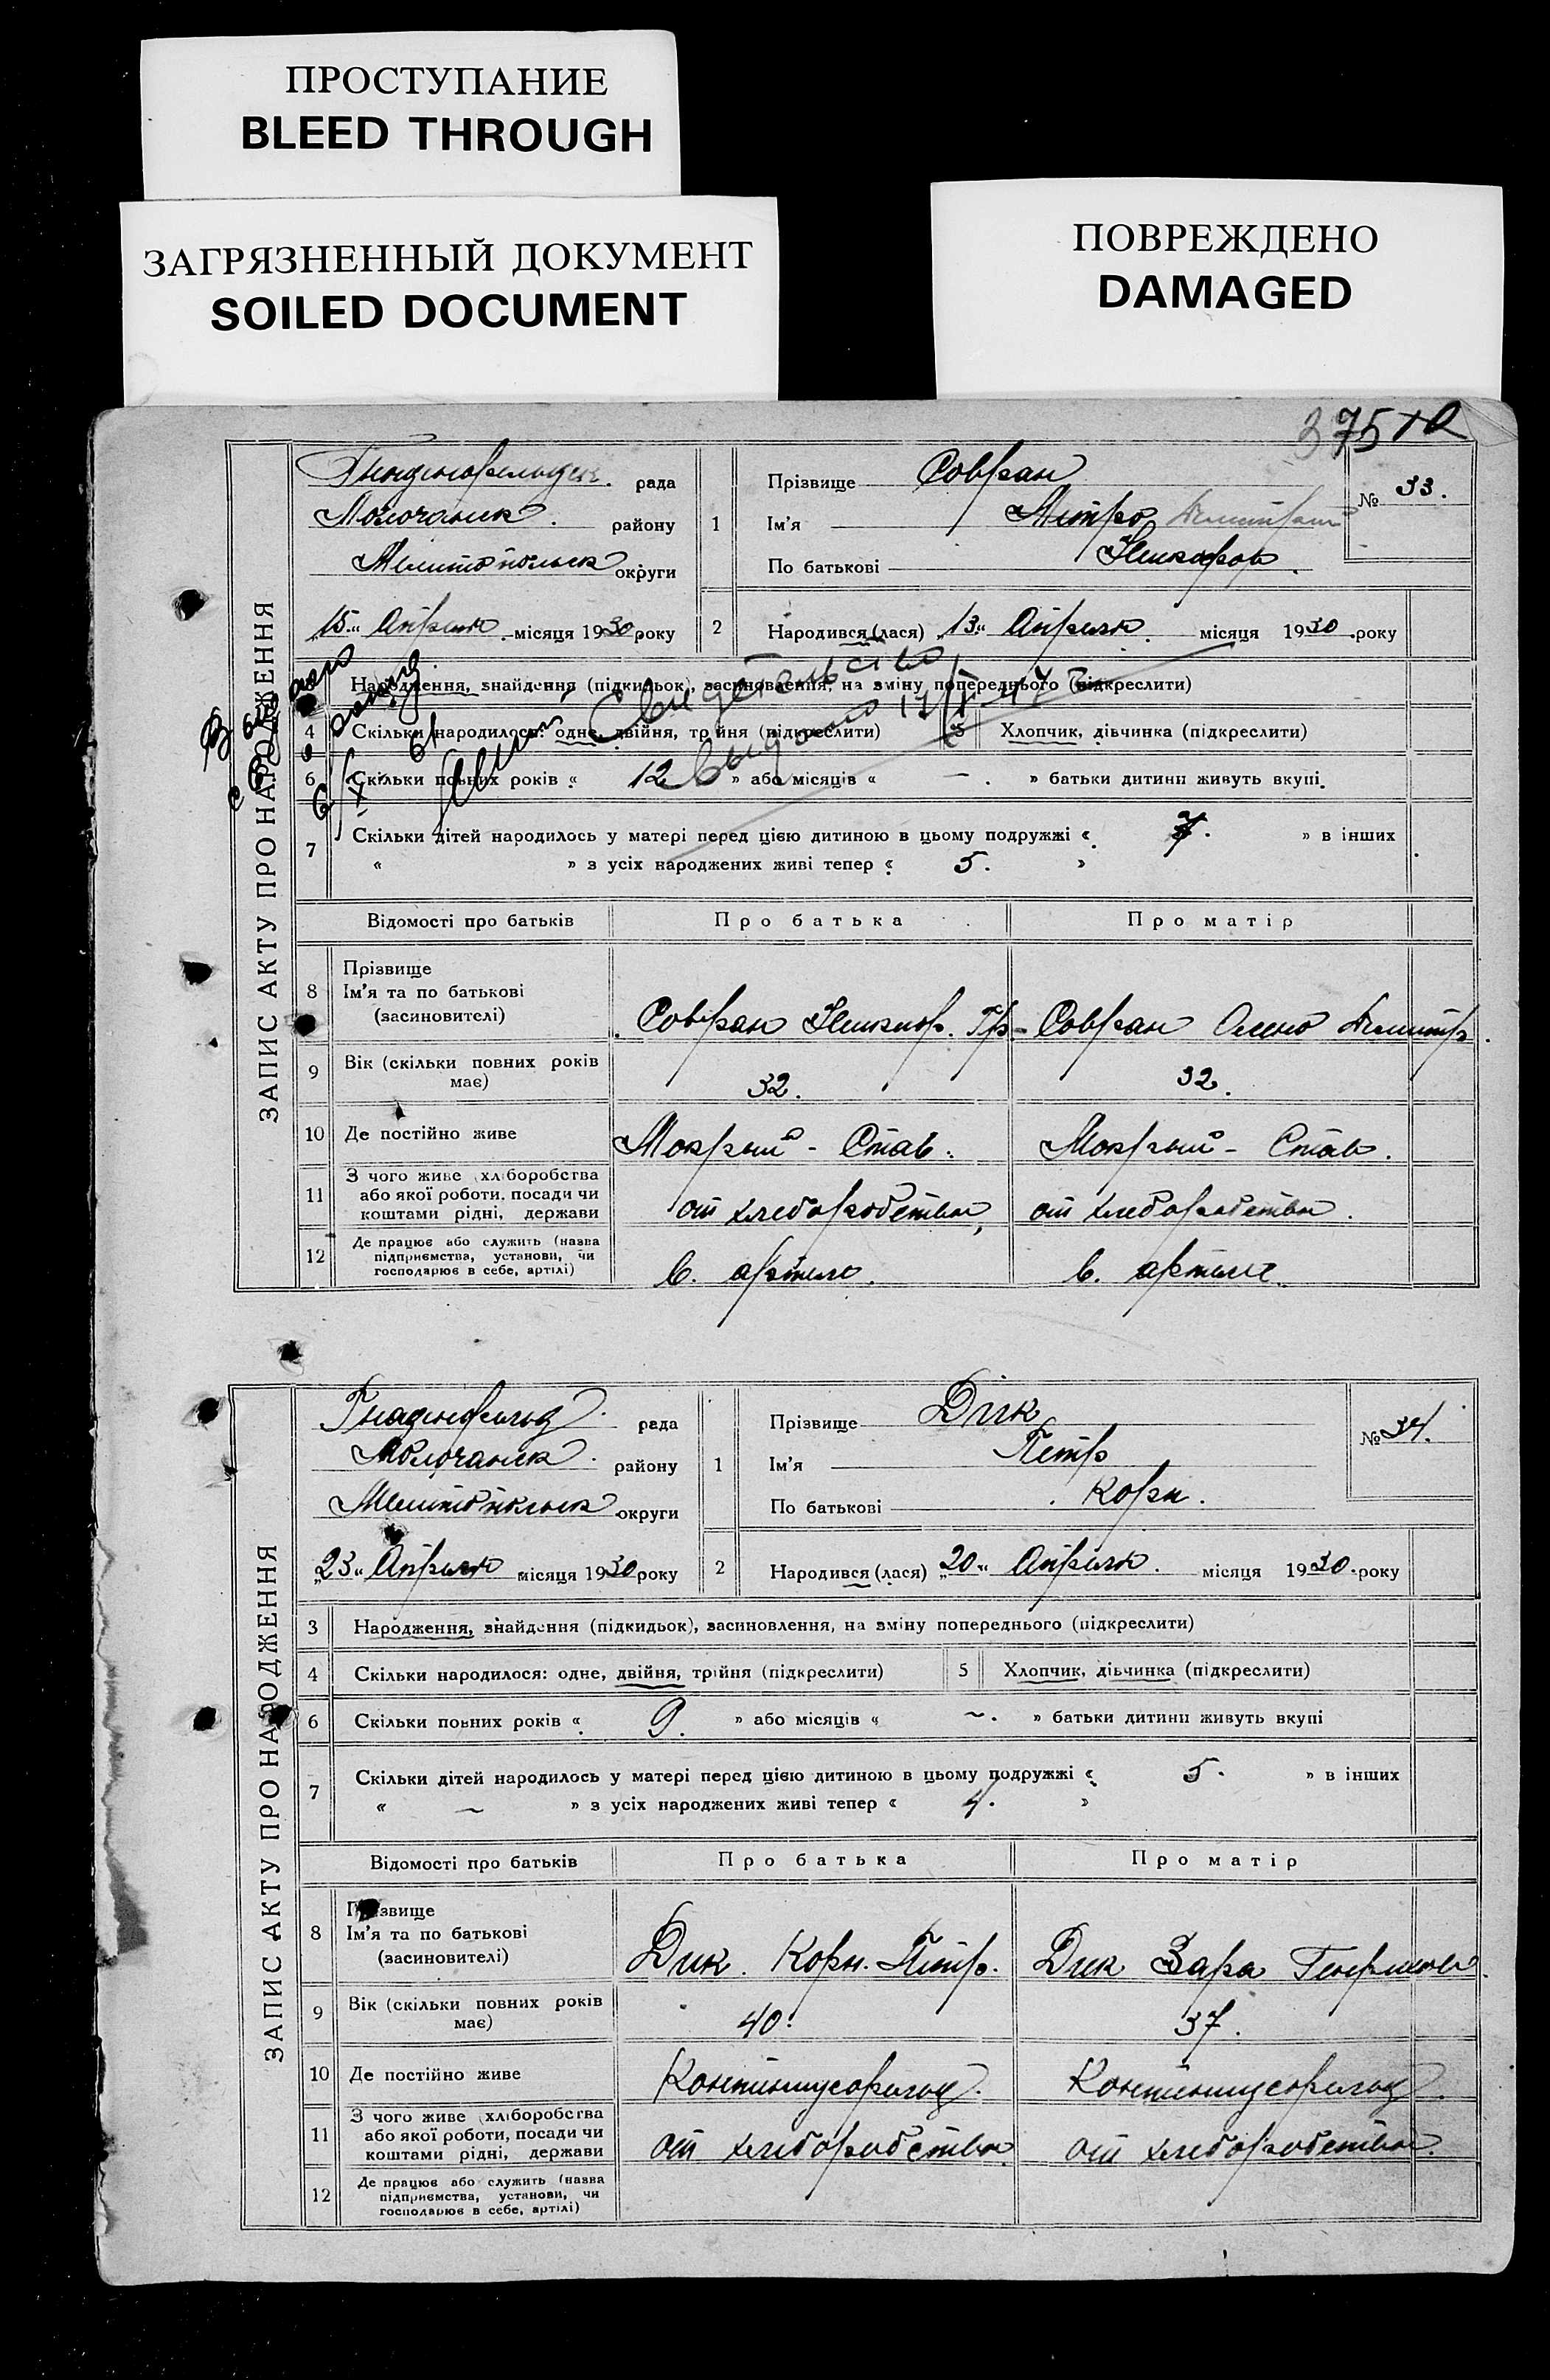 ПРОСТУПАНИЕ
BLEED THROUGH
ЗАГРЯЗНЕННЫЙ ДОКУМЕНТ
SOILED DOCUMENT
ПОВРЕЖДЕНО
DAMAGED
375
ЗАПИС АКТУ ПРО НАРОДЖЕННЯ
рада
Молочанск. району
Мелитопольск округи
„15" Апреля місяця 1930 року
1 Прізвище Совран
Ім'я Митро
По батькові Никифор.
№ 33.
2 Народився (лася) „13" Апреля. місяця 1930 року
Народження, знайдення (підкидьок), засиновлення, на зміну попереднього (підкреслити)
Свидетельство
выдано
4 Скільки народилося: одне, двійня, трійня (підкреслити) 5 Хлопчик, дівчинка (підкреслити)
6 Скільки повних років « 12 » або місяців « — . » батьки дитини живуть вкупі.
7 Скільки дітей народилось у матері перед цією дитиною в цьому подружжі « 7. » в інших
« » з усіх народжених живі тепер « 5. »
Відомості про батьків Про батька Про матір
8 Прізвище
Ім'я та по батькові
(засиновителі)
Совран Никифор. Гр. Совран Олена Дмитр.
9 Вік (скільки повних років має) 32. 32.
10 Де постійно живе Мокрый - Став. Мокрый - Став.
11 З чого живе (хліборобства
або якої роботи, посади чи
коштами рідні, держави
от хлеборобства, от хлеборобства.
12 Де працює або служить (назва
підприємства, установи, чи
господарює в себе, артілі)
в. артели. в. артели.
ЗАПИС АКТУ ПРО НАРОДЖЕННЯ
Гнаденфельд. рада
Молочанск. району
Мелитопольск округи
„23" Апреля місяця 1930 року
1 Прізвище Дік
Ім'я Петр
По батькові Корн.
№ 34.
2 Народився (лася) „20" Апреля. місяця 1930 року
3 Народження, знайдення (підкидьок), засиновлення, на зміну попереднього (підкреслити)
4 Скільки народилося: одне, двійня, трійня (підкреслити) 5 Хлопчик, дівчинка (підкреслити)
6 Скільки повних років « 9. » або місяців « ~. » батьки дитини живуть вкупі
7 Скільки дітей народилось у матері перед цією дитиною в цьому подружжі « 5. » в інших
« ~ » з усіх народжених живі тепер « 4. »
Відомості про батьків Про батька Про матір
8 Прізвище
Ім'я та по батькові
(засиновителі)
Дик. Корн. Петр. Дик Зара Генрихов.
9 Вік (скільки повних років має) 40. 37.
10 Де постійно живе Контениусфельд. Контениусфельд.
11 З чого живе (хліборобства
або якої роботи, посади чи
коштами рідні, держави
от хлеборобства от хлеборобства.
12 Де працює або служить (назва
підприємства, установи, чи
господарює в себе, артілі)